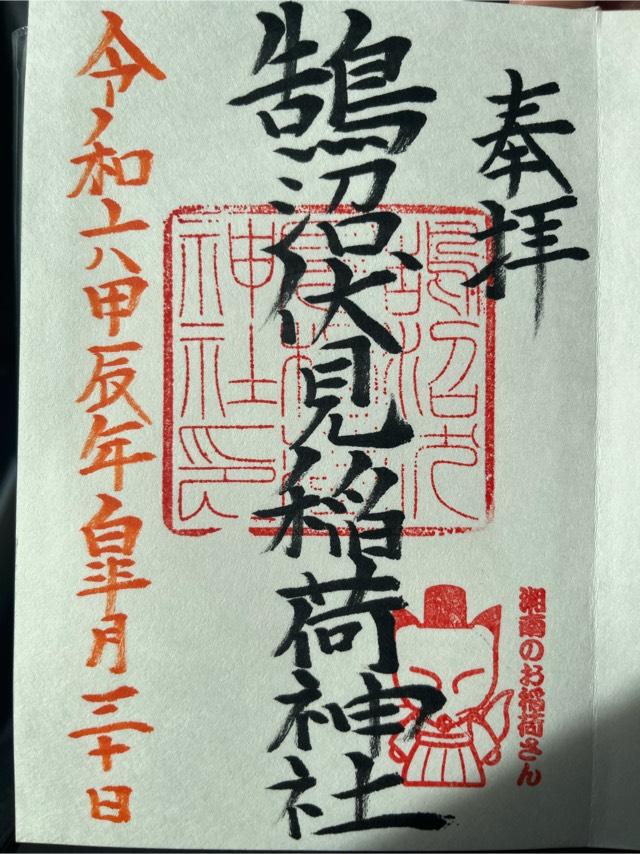 奉拝
鵠沼伏見稲荷神社
鵠沼伏
見稲荷
神社印
湘南のお稲荷さん
令和六甲辰年皐月三十日